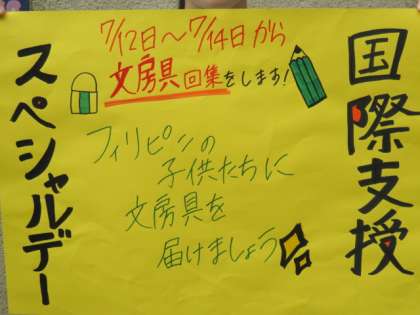 国際支授
7/12日～7/14日から
文房具回集をします!
フィリピンの
子供たちに
文房具を
届けましょう
スペシャルデー